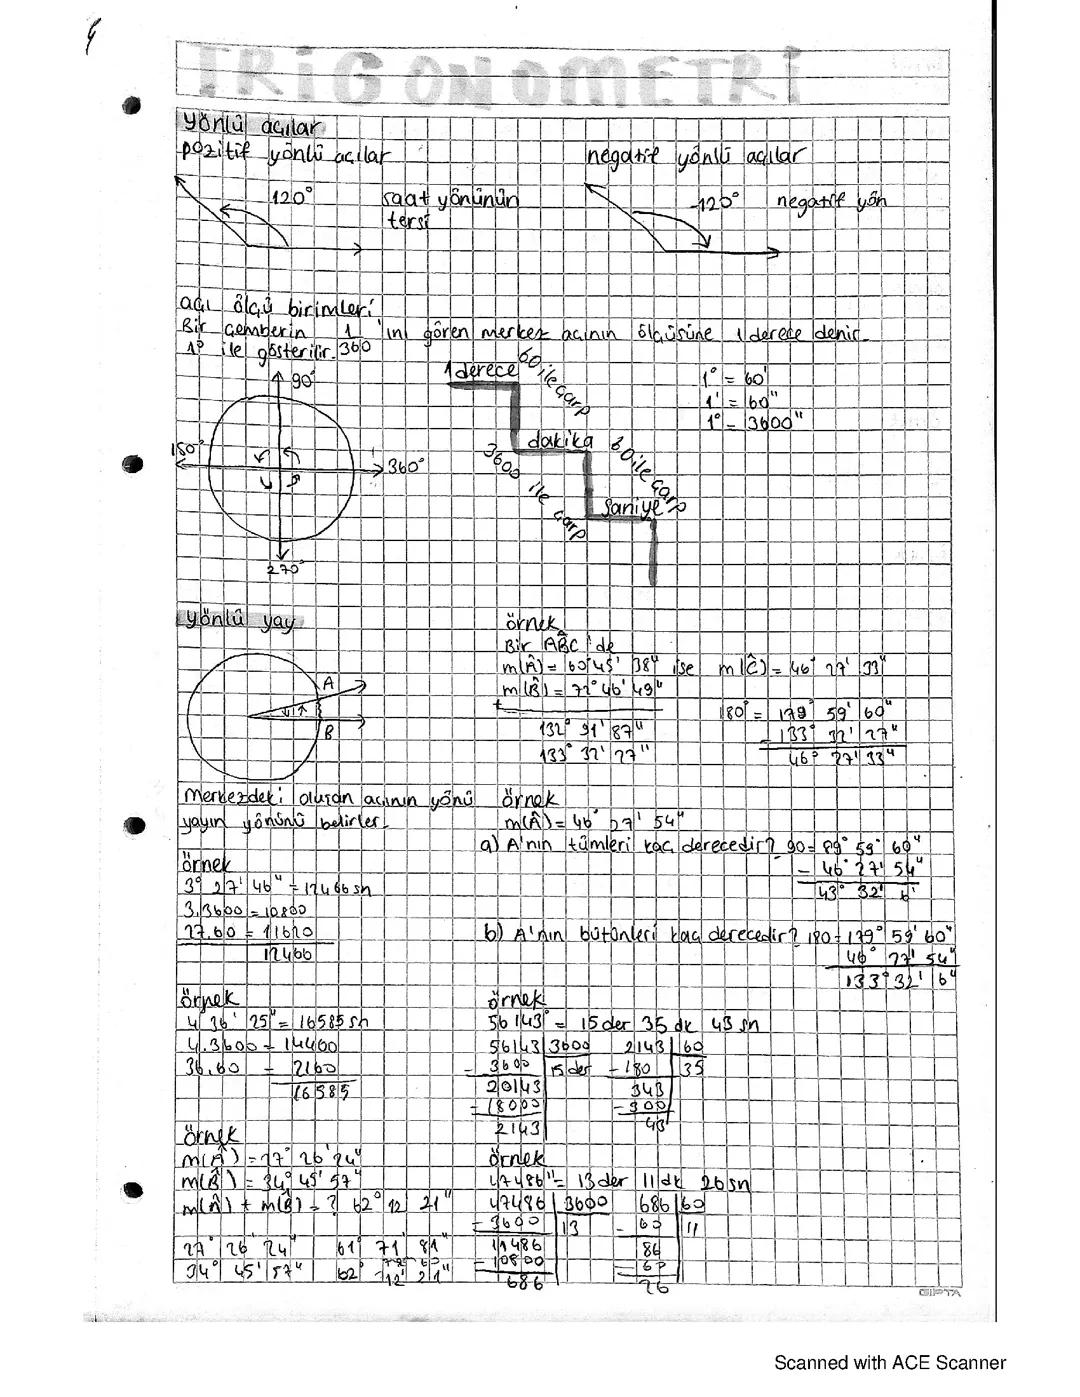 TRİGONOMETRİ
yönlü açılar
pozitif yönlü açılar
120°
saat yönünün
tersi
negatif yönlü açılar
-120°
negatif yön
açı ölçü birimleri
Bir çemberin 1/360 'ını gören merkez açının ölçüsüne 1 derece denir.
1° ile gösterilir.
90°
180°
360°
270°
1 derece
60 ile çarp
dakika
60 ile çarp
saniye
3600 ile çarp
1° = 60'
1' = 60"
1° = 3600"
yönlü yay
A
B
merkezdeki oluşan açının yönü
yayın yönünü belirler.
örnek
Bir ABC 'de
m(Â) = 60° 45' 38" ise m(Ĉ) = 46° 27' 33"
m(B̂) = 72° 46' 49"
+
132° 91' 87"
133° 32' 27"
180° = 179° 59' 60"
- 133° 32' 27"
46° 27' 33"
örnek
3° 27' 46" = 12466 sn
3.3600 = 10800
27.60 = 11620
12466
örnek
m(Â) = 46° 27' 54"
a) A'nın tümleri kaç derecedir? 90 = 89° 59' 60"
- 46° 27' 54"
43° 32' 6'
b) A'nın bütünleri kaç derecedir? 180 = 179° 59' 60"
46° 27' 54"
133° 32' 6"
örnek
4 36' 25" = 16585 sn
4.3600 = 14400
36.60 = 2160
16585
örnek
56143" = 15 der 35 dk 43 sn
56143 3600
- 3600 15 der
20143
- 18000
2143
2143 60
- 180 35
343
- 300
43
örnek
m(Â) = 27° 26' 24"
m(B̂) = 34° 45' 57"
m(Â) + m(B̂) = ? 62° 12 21"
27° 26' 24" 61° 71' 81"
34° 45' 57" 62° 12' 21"
örnek
47486" = 13 der 11 dk 26 sn
47486 3600
- 3600 13
11486
- 10800
686
686 60
- 60 11
86
- 60
26
GIPTA
Scanned with ACE Scanner